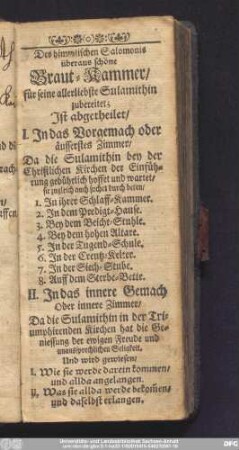 Des himmlischen Salomonis
überaus schöne
Braut-Kammer/
für seine allerliebste Sulamithin
zubereitet;
Ist abgetheilet/
I. In das Vorgemach oder
äusserstes Zimmer/
Da die Sulamithin bey der
Christlichen Kirchen der Einfüh-
rung gebührlich hoffet und wartet/
sie zugleich auch suchet durch beten/
1. In ihrer Schlaff-Kammer.
2. In dem Predigt-Hause.
3. Bey dem Beicht-Stuhle.
4. Bey dem hohen Altare.
5. In der Tugend-Schule.
6. In der Creutz-Kelter.
7. In der Siech-Stube.
8. Auff dem Sterbe-Bette.
II. In das innere Gemach
Oder innere Zimmer/
Da die Sulamithin in der Tri-
umphirenden Kirchen hat die Ge-
niessung der ewigen Freude und
unaussprechlichen Seligkeit.
Und wird gewiesen/
I. Wie sie werde darein kommen/
und allda angelangen.
II. Was sie allda werde bekommen/
und daselbst erlangen.
Universitäts- und Landesbibliothek Sachsen-Anhalt